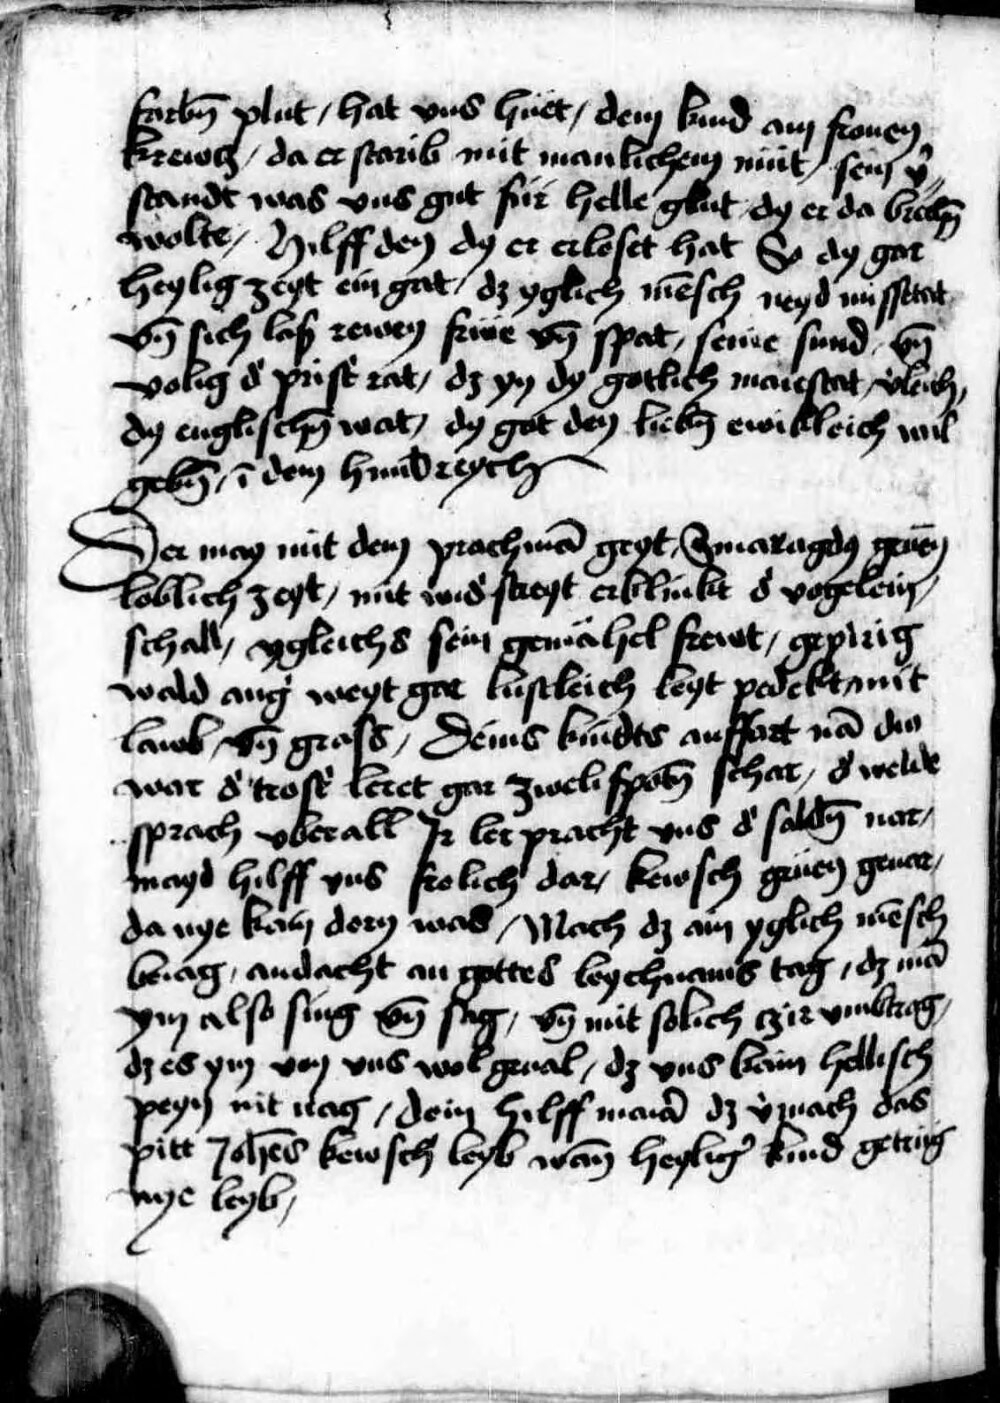 farbn̄ plut / hat vns hüet / dein kind am fronen
krewtz / da er starib mit manlichem müt / sein v̓
standt was vns gut für helle glut dy er da brechn̄
wolte / Hilff den dy er erloset hat So dy gar
heylig zeyt ein gat / dz yglich mēsch neyd missetat
vn̄ sich laß rewen früe vn̄ spat / seine sund vn̄
volig d̓ prist̓ rat / dz yn dy gotlich maiestat / v̓leich
dy englischn̄ wat / dy got den liebn̄ ewikleich wil
gebn̄ / ī dem himelreych
Der may mit dem prachmā geyt / Smaragdy grüen
loblich zeyt / mit wid̓streyt erklinkt d̓ vogelein
schall / ygleichs sein gemahel frewt / gepirig
wald ang̓ weyt gar lustleich leyt pedekt / mit
lawb / vn̄ grass / Deins kindts auffart nā din
war d̓ trost̓ leret gar zwelifpotn̄ schar / d̓ welde
sprach vberall Ir ler pracht vns d̓ saldn̄ nar /
mayd hilff vns frolich dar / kewsch grüen gevar /
da nye kain dorn was / Mach dz ain yglich mēsch
beiag / andacht an gottes leychnams tag / dz mā
ym also sing vn̄ sag / vn̄ mit solich czir vmbtrag /
dz es ym von vns wol geual / dz vns kain hellisch
peyn nit nag / dein hilff mariā dz v̓mach das
pitt Joh̄es kewsch leyb wan̄ heylig̓ kind getrüg
nye leyb /